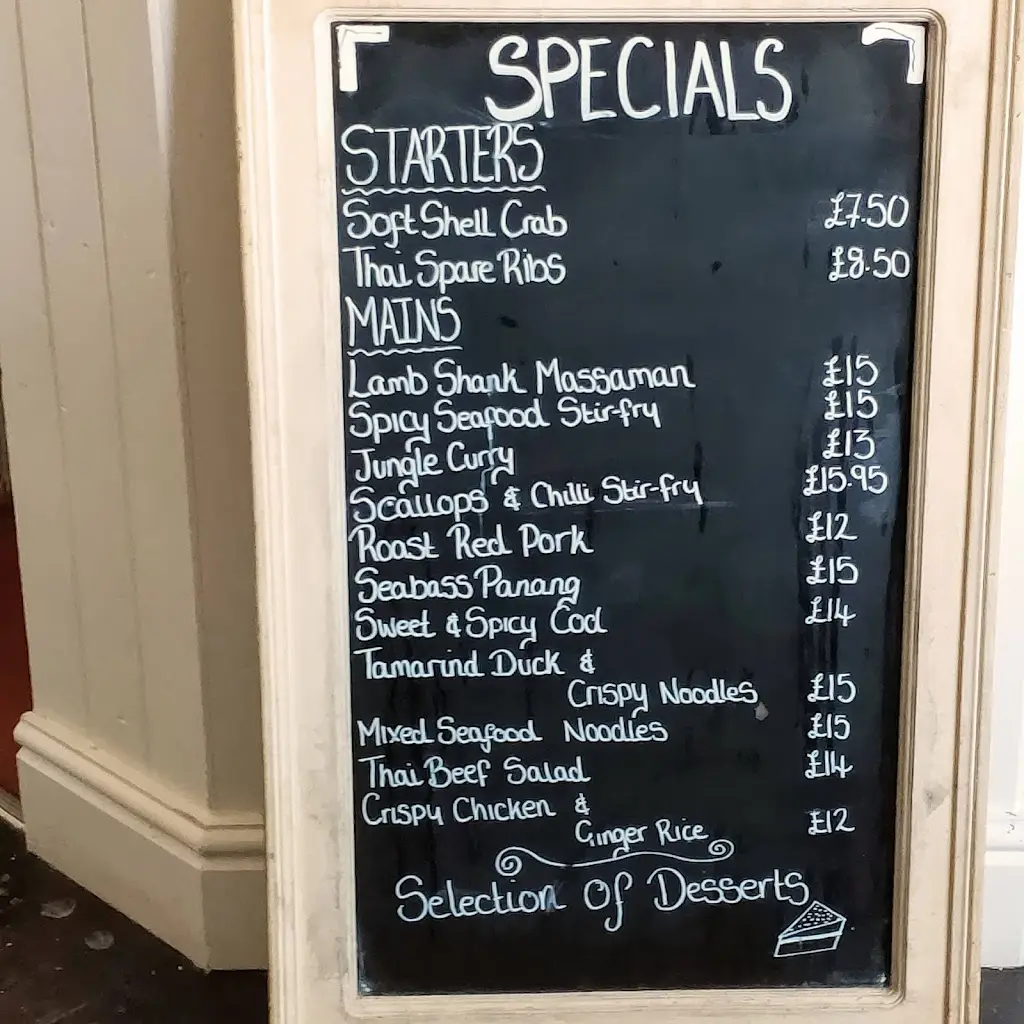 SPECIALS
STARTERS
Soft Shell Crab £7.50
Thai Spare Ribs £8.50
MAINS
Lamb Shank Massaman £15
Spicy Seafood Stir-fry £15
Jungle Curry £13
Scallops & Chilli Stir-fry £15.95
Roast Red Pork £12
Seabass Panang £15
Sweet & Spicy Cod £14
Tamarind Duck &
Crispy Noodles £15
Mixed Seafood Noodles £15
Thai Beef Salad £14
Crispy Chicken &
Ginger Rice £12
Selection Of Desserts